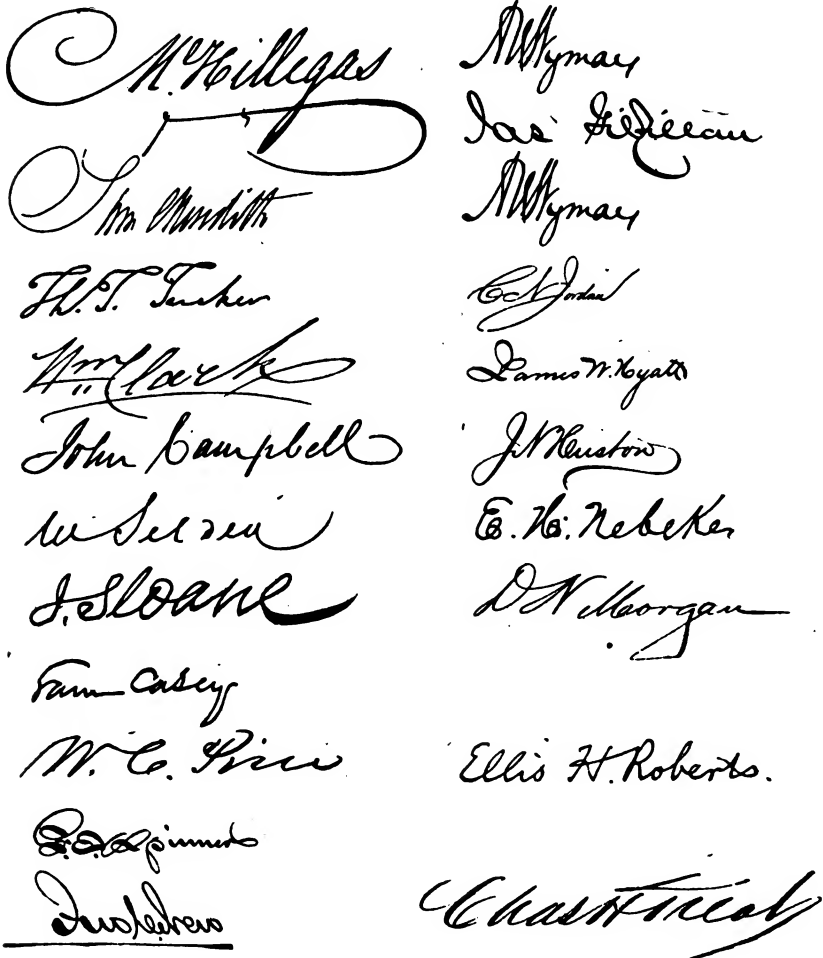 M. Hillegas
Sam Meredith
Th. T. Tucker
Wm Clark
John Campbell
W Selden
J. Sloane
Sam Casey
W. C. Price
F. E. Spinner
Jno C New
A U Wyman
Jas Gilfillan
A U Wyman
C N Jordan
James W. Hyatt
J N Huston
E. H. Nebeker
D N Morgan
Ellis H. Roberts.
Chas H Treat